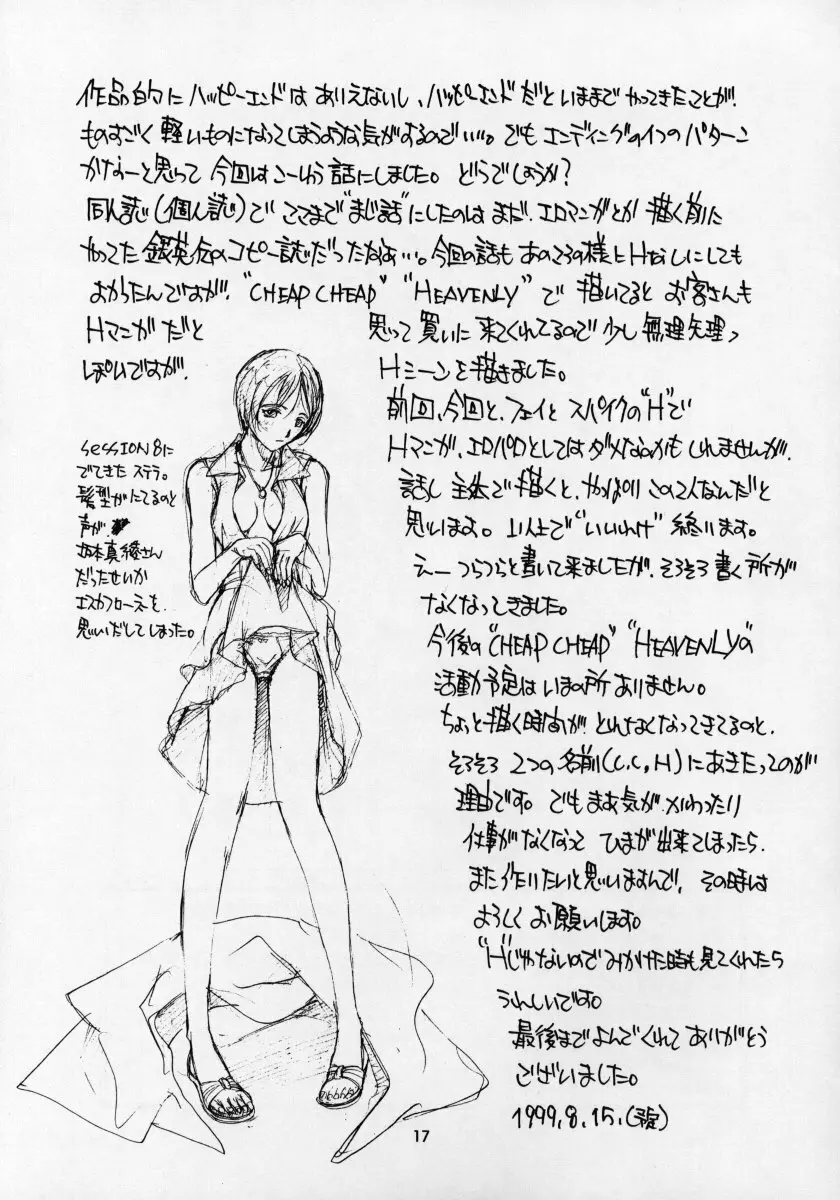 作品的にハッピーエンドはありえないし、ハッピーエンドだといままでやってきたことが、
ものすごく軽いものになってしまうような気がするので…。でもエンディングの1つのパターン
かなーと思って今回はこーゆう話にしました。どうでしょうか?
同人誌(個人誌)でここまで"まじ話"にしたのはまだ、エロマンガとか描く前に
やってた銀英伝のコピー誌だったなぁ…。今回の話もあのころの様にHなしにしても
よかったんですが、"CHEAP CHEAP" "HEAVENLY"で描いてるとお客さんも
Hマンガだと思って買いに来てくれてるので少し無理矢理っ
ぽいですが、Hシーンを描きました。
前回、今回と、フェイとスパイクの"H"で
Hマンガ、エロパロとしてはダメなのかもしれませんが、
話し主体で描くと、やっぱりこの2人なんだと
思います。以上で"いいわけ"終ります。
えーつらつらと書いて来ましたが、そろそろ書く所が
なくなってきました。
今後の"CHEAP CHEAP" "HEAVENLY"の
活動予定はいまの所ありません。
ちょっと描く時間がとれなくなってきてるのと、
そろそろ2つの名前(C.C,H)にあきたってのが
理由です。でもまあ気がかわったり
仕事がなくなってひまが出来てしまったら、
また作りたいと思いますんで、その時は
よろしくお願いします。
"H"じゃないのでみかけた時も見てくれたら
うれしいです。
最後までよんでくれてありがとう
ございました。
1999.8.15.
SESSION8に
でてきたステラ。
髪型がにてるのと
声が
坂本真綾さん
だったせいか
エスカフローネを
思いだしてしまった。
17